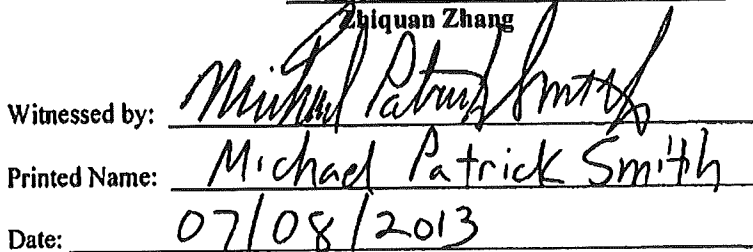 Zhiquan Zhang
Witnessed by: Michael Patrick Smith
Printed Name: Michael Patrick Smith
Date: 07/08/2013